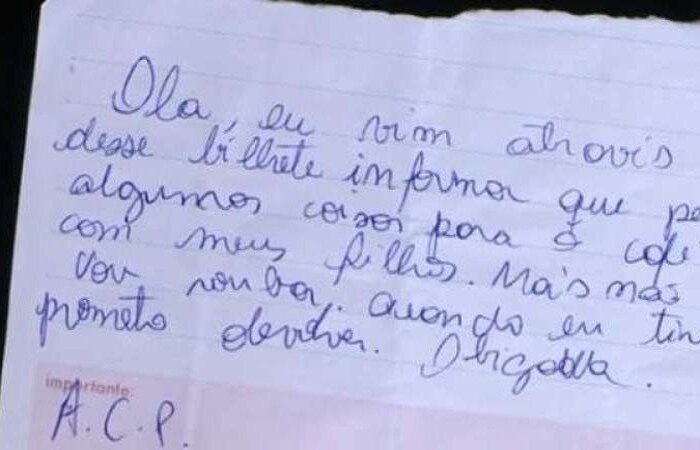 Ola, eu vim atrovis
desse bilhete informor que pe
algumos coisos para o cafe
com meus filhos. Mais mas
Vou roubar. Quando eu tin
prometo devolver. Obrigada.
importante:
A.C.P.